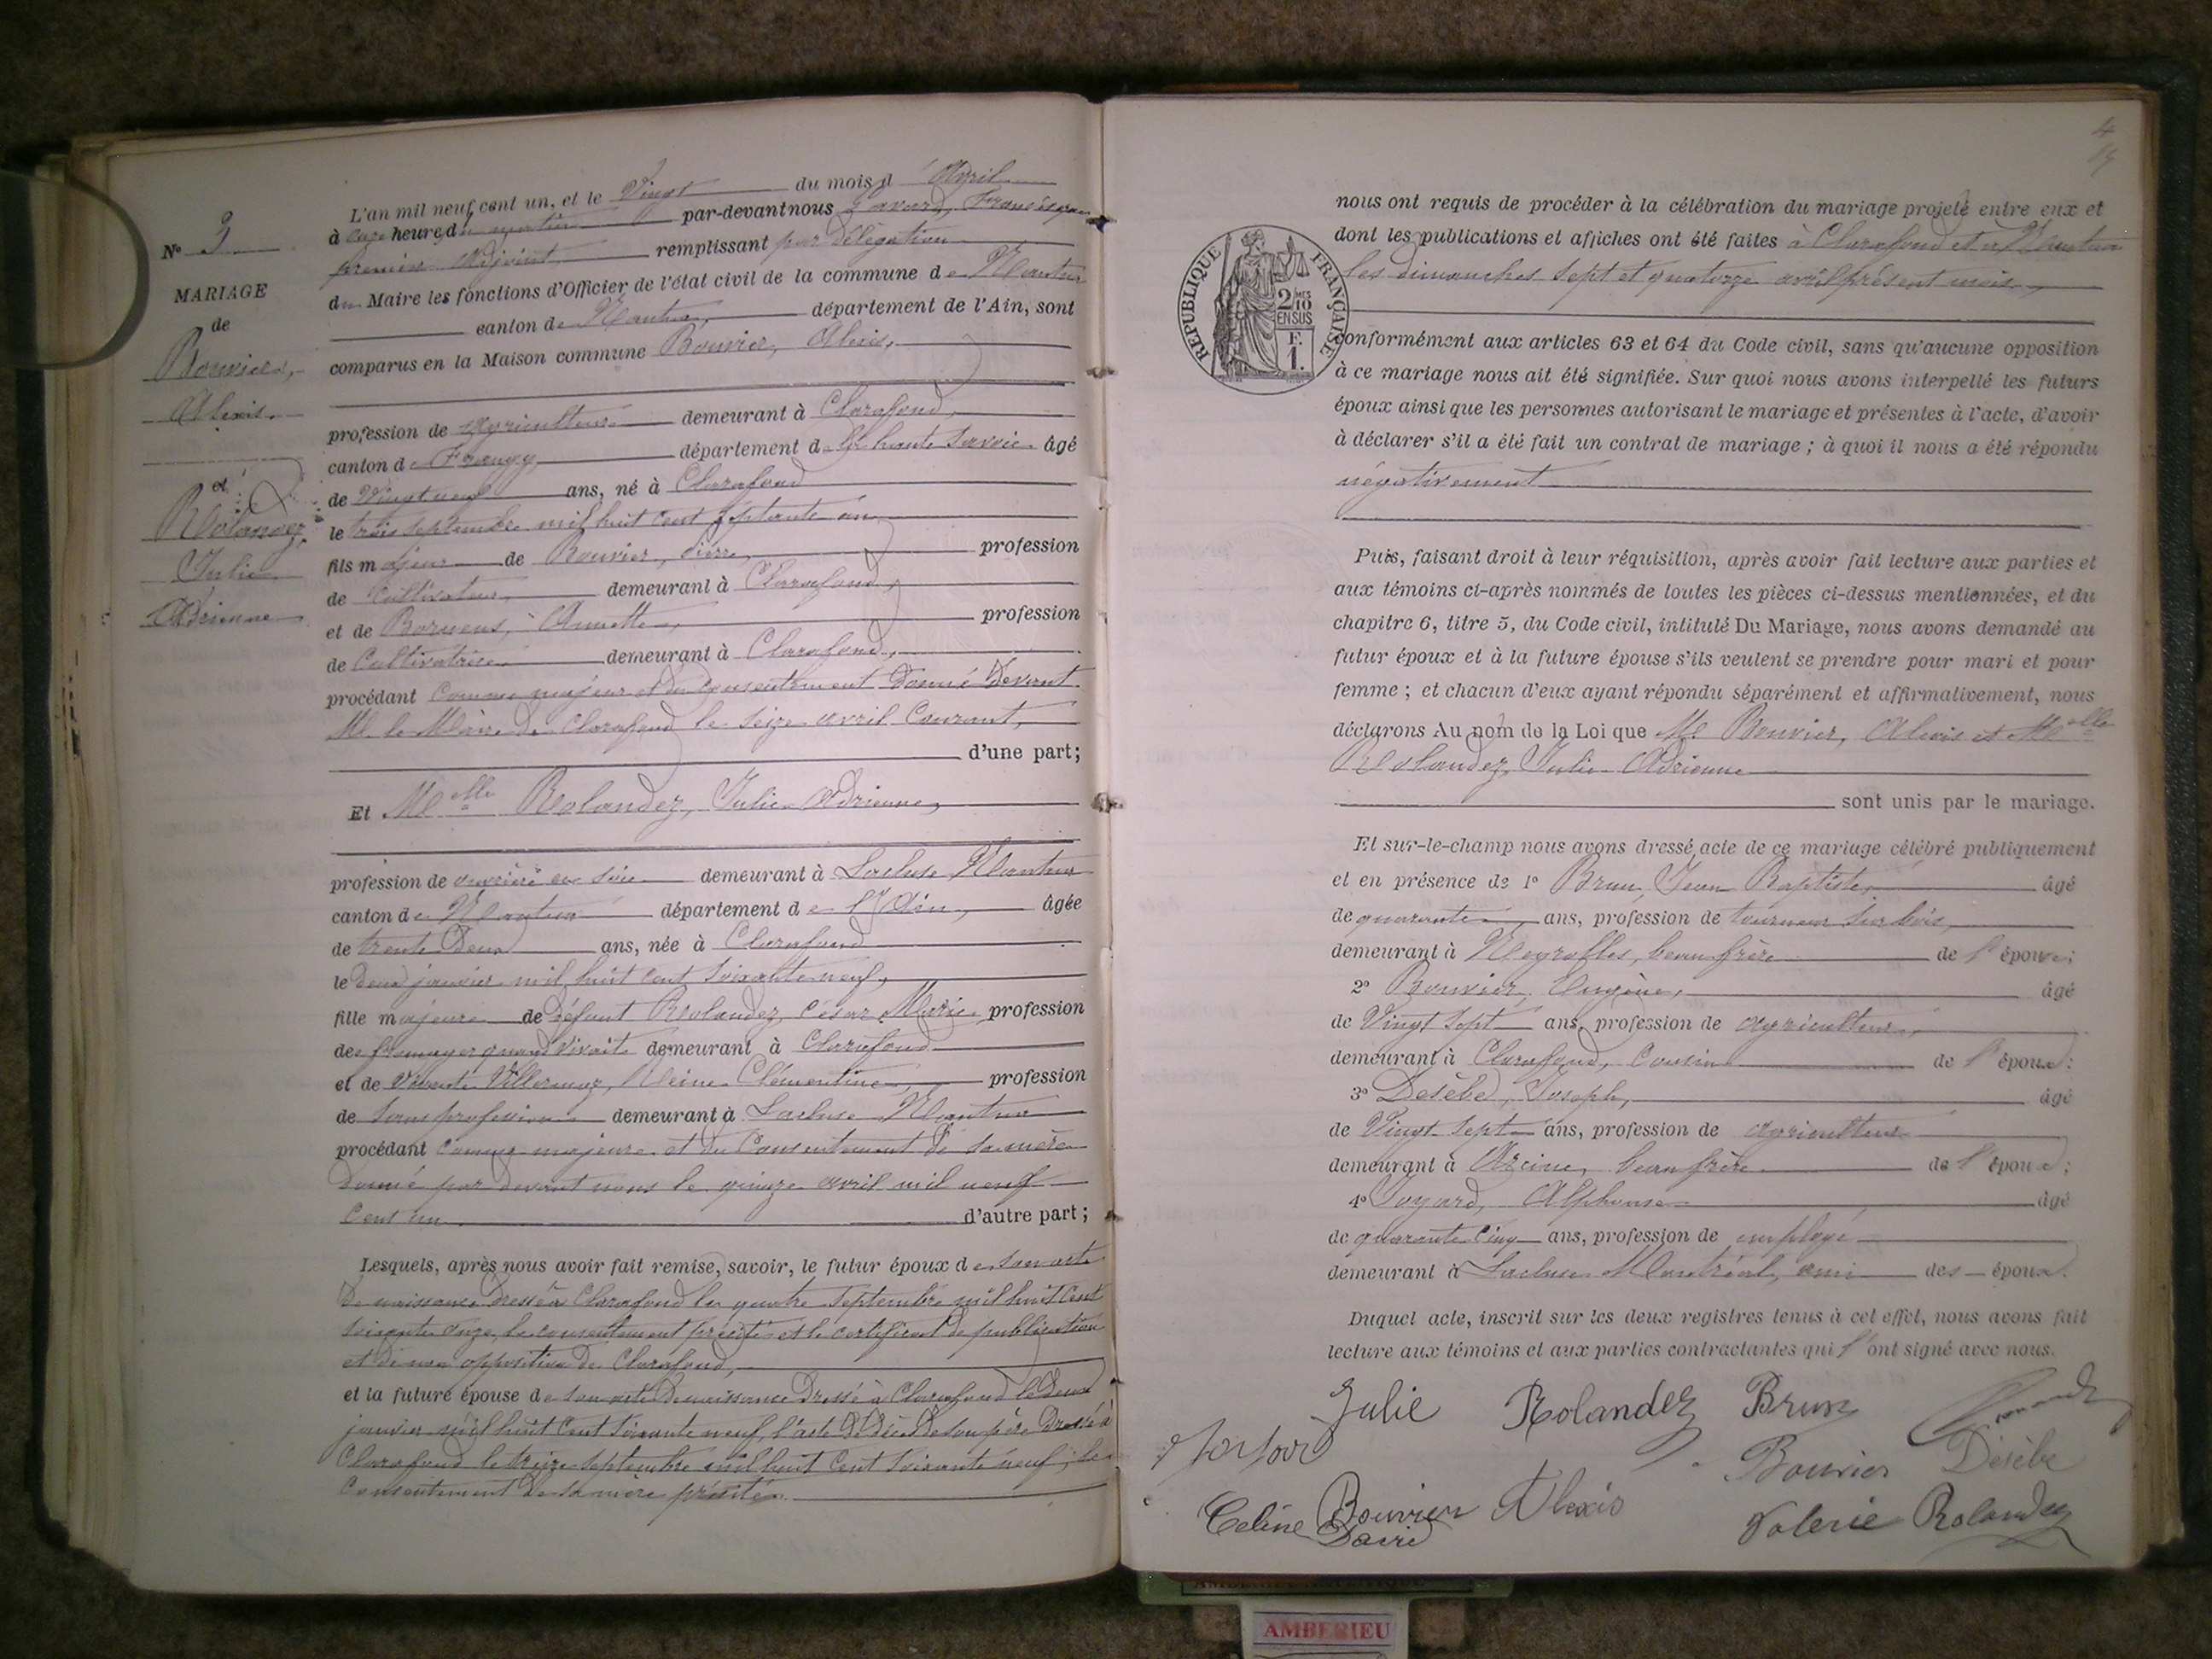 L'an mil neuf cent un, et le Vingt du mois d'Avril
à onze heures du matin par-devant nous François
premier Adjoint remplissant par délégation
du Maire les fonctions d'Officier de l'état civil de la commune de Nantua
canton de Nantua, département de l'Ain, sont
comparus en la Maison commune Bouvier, Alexis,
profession de agriculteur demeurant à Clarafond,
canton de Frangy département de la haute Savoie âgé
de Vingt neuf ans, né à Clarafond
le trois septembre mil huit cent septante un
fils majeur de Bouvier, Pierre, profession
de Cultivateur demeurant à Clarafond,
et de Annette, profession
de Cultivatrice demeurant à Clarafond,
procédant comme majeur et du consentement donné devant
M. le Maire de Clarafond le seize avril Courant,
d'une part;
Et Melle Rolandez, Julie Adrienne,
profession de ouvrière en soie demeurant à Lacluse, Nantua
canton de Nantua département de l'Ain, âgée
de trente Deux ans, née à Clarafond
le Deux janvier mil huit cent soixante neuf,
fille majeure de défunt Rolandez, César Marie, profession
de fromager quand vivait demeurant à Clarafond
et de vivante Villermoz, Reine Clémentine, profession
de sans profession demeurant à Lacluse Nantua
procédant comme majeure et du Consentement de sa mère
donné par devant nous le quinze avril mil neuf
Cent un d'autre part;
Lesquels, après nous avoir fait remise, savoir, le futur époux de son acte
de naissance dressé à Clarafond le quatre septembre mil huit Cent
soixante onze, le consentement précité et le certificat de publication
et de non opposition de Clarafond,
et la future épouse de son acte de naissance Dressé à Clarafond le Deux
janvier mil huit Cent soixante neuf, l'acte de décès de son père dressé à
Clarafond le treize septembre mil huit Cent soixante neuf; le
Consentement de sa mère précité.
N° 3
MARIAGE
de
Bouvier,
Alexis.
et
Rolandez
Julie
Adrienne
4
nous ont requis de procéder à la célébration du mariage projeté entre eux et
dont les publications et affiches ont été faites à Clarafond et à Nantua
les dimanches sept et quatorze avril présent mois,
REPUBLIQUE FRANÇAISE
2/10 MES
EN SUS
F.
1.
conformément aux articles 63 et 64 du Code civil, sans qu'aucune opposition
à ce mariage nous ait été signifiée. Sur quoi nous avons interpellé les futurs
époux ainsi que les personnes autorisant le mariage et présentes à l'acte, d'avoir
à déclarer s'il a été fait un contrat de mariage ; à quoi il nous a été répondu
négativement
Puis, faisant droit à leur réquisition, après avoir fait lecture aux parties et
aux témoins ci-après nommés de toutes les pièces ci-dessus mentionnées, et du
chapitre 6, titre 5, du Code civil, intitulé Du Mariage, nous avons demandé au
futur époux et à la future épouse s'ils veulent se prendre pour mari et pour
femme ; et chacun d'eux ayant répondu séparément et affirmativement, nous
déclarons Au nom de la Loi que M. Bouvier, Alexis et Melle
Rolandez, Julie Adrienne
sont unis par le mariage.
Et sur-le-champ nous avons dressé acte de ce mariage célébré publiquement
et en présence de 1° Brun, Jean Baptiste, âgé
de quarante ans, profession de tourneur sur bois,
demeurant à Neyrolles, beau frère de l'épouse;
2° Bouvier, Eugène, âgé
de Vingt sept ans, profession de agriculteur,
demeurant à Clarafond, Cousin de l'époux:
3° Desèbe, Joseph, âgé
de Vingt sept ans, profession de agriculteur
demeurant à Arcine, beau frère de l'époux;
4° Joyard, Alphonse âgé
de quarante Cinq ans, profession de employé
demeurant à Lacluse Montréal, ami des époux.
Duquel acte, inscrit sur les deux registres tenus à cet effet, nous avons fait
lecture aux témoins et aux parties contractantes qui l'ont signé avec nous.
Julie Rolandez Brun
Bouvier Désèbe
Bouvier Alexis
Celine
Valerie Rolandez
AMBERIEU